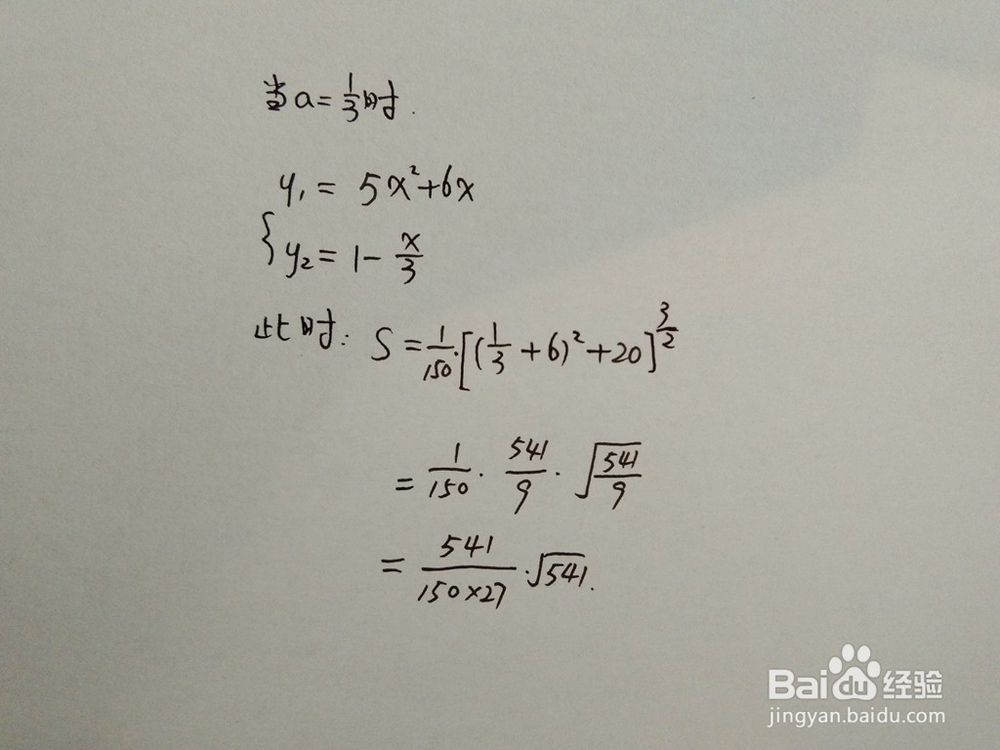 当a=1/3时.
y₁ = 5x²+6x
{y₂ = 1 - x/3
此时: S = 1/150·[(1/3+6)²+20]^(3/2)
= 1/150 · 541/9 · √(541/9)
= 541/(150×27) · √541.
Baidu经验
jingyan.baidu.com